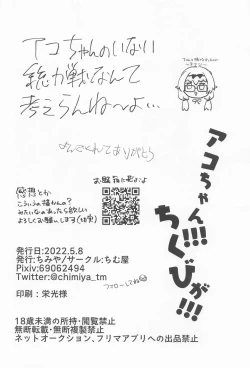 アコちゃんのいない
総力戦なんて
考えらんね〜よ…
よんでくれてありがとう
お題箱だよ↓
感想とか
こういうの描かんの?
みたいなのあったら欲しい
よろしくお願いします(切実)
フォローしてね
アコちゃん!!!
ちくびが!!!
発行日:2022.5.8
発行:ちみや/サークル:ちむ屋
Pixiv:69062494
Twitter:@chimiya_tm
印刷:栄光様
18歳未満の所持・閲覧禁止
無断転載・無断複製禁止
ネットオークション、フリマアプリへの出品禁止